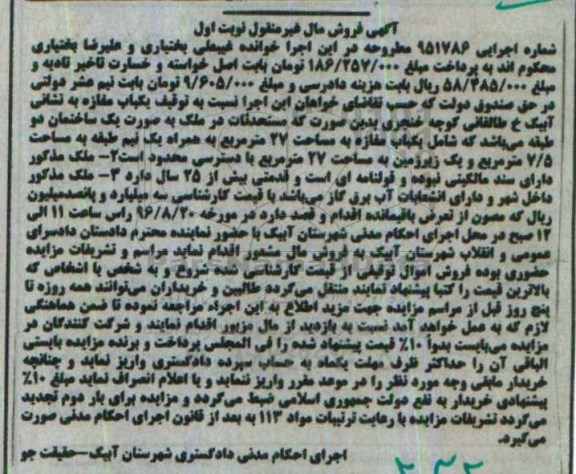 آگهی فروش مال غیرمنقول نوبت اول
شماره اجرایی ۹۵۱۷۸۶ مطروحه در این اجرا خوانده غیبعلی بختیاری و علیرضا بختیاری
محکوم اند به پرداخت مبلغ ۱۸۶/۲۵۷/۰۰۰ تومان بابت اصل خواسته و خسارت تاخیر تادیه و
مبلغ ۵۸/۴۸۵/۰۰۰ ریال بابت هزینه دادرسی و مبلغ ۹/۶۰۵/۰۰۰ تومان بابت نیم عشر دولتی
در حق صندوق دولت که حسب تقاضای خواهان این اجرا نسبت به توقیف یکباب مغازه به نشانی
آبیک خ طالقانی کوچه خنجری بدین صورت که مستحدثات در ملک به صورت یک ساختمان دو
طبقه میباشد که شامل یکباب مغازه به مساحت ۲۷ مترمربع به همراه یک نیم طبقه به مساحت
۷/۵ مترمربع و یک زیرزمین به مساحت ۲۷ مترمربع با دسترسی محدود است۲- ملک مذکور
دارای سند مالکیتی نبوده و قولنامه ای است و قدمتی بیش از ۲۵ سال دارد ۳- ملک مذکور
داخل شهر و دارای انشعابات آب برق گاز میباشد با قیمت کارشناسی سه میلیارد و پانصدمیلیون
ریال که مصون از تعرض باقیمانده اقدام و قصد دارد در مورخه ۹۶/۸/۲۰ راس ساعت ۱۱ الی
۱۲ صبح در محل اجرای احکام مدنی شهرستان آبیک با حضور نماینده محترم دادستان دادسرای
عمومی و انقلاب شهرستان آبیک به فروش مال مشعور اقدام نماید مراسم و تشریفات مزایده
حضوری بوده فروش اموال توقیفی از قیمت کارشناسی شده شروع و به شخص یا اشخاص که
بالاترین قیمت را کتبا پیشنهاد نمایند منتقل میگردد طالبین و خریداران میتوانند همه روزه تا
پنج روز قبل از مراسم مزایده جهت مزید اطلاع به این اجراء مراجعه نموده تا ضمن هماهنگی
لازم که به عمل خواهد آمد نسبت به بازدید از مال مزبور اقدام نمایند و شرکت کنندگان در
مزایده میبایست بدواً ۱۰٪ قیمت پیشنهاد شده را فی المجلس پرداخت و برنده مزایده بایستی
الباقی آن را حداکثر ظرف مهلت یکماه به حساب سپرده دادگستری واریز نماید و چنانچه
خریدار مابقی وجه مورد نظر را در موعد مقرر واریز ننماید و یا اعلام انصراف نماید مبلغ ۱۰٪
پیشنهادی خریدار به نفع دولت جمهوری اسلامی ضبط میگردد و مزایده برای بار دوم تجدید
میگردد تشریفات مزایده با رعایت ترتیبات مواد ۱۱۳ به بعد از قانون اجرای احکام مدنی صورت
میگیرد.
اجرای احکام مدنی دادگستری شهرستان آبیک-حقیقت جو